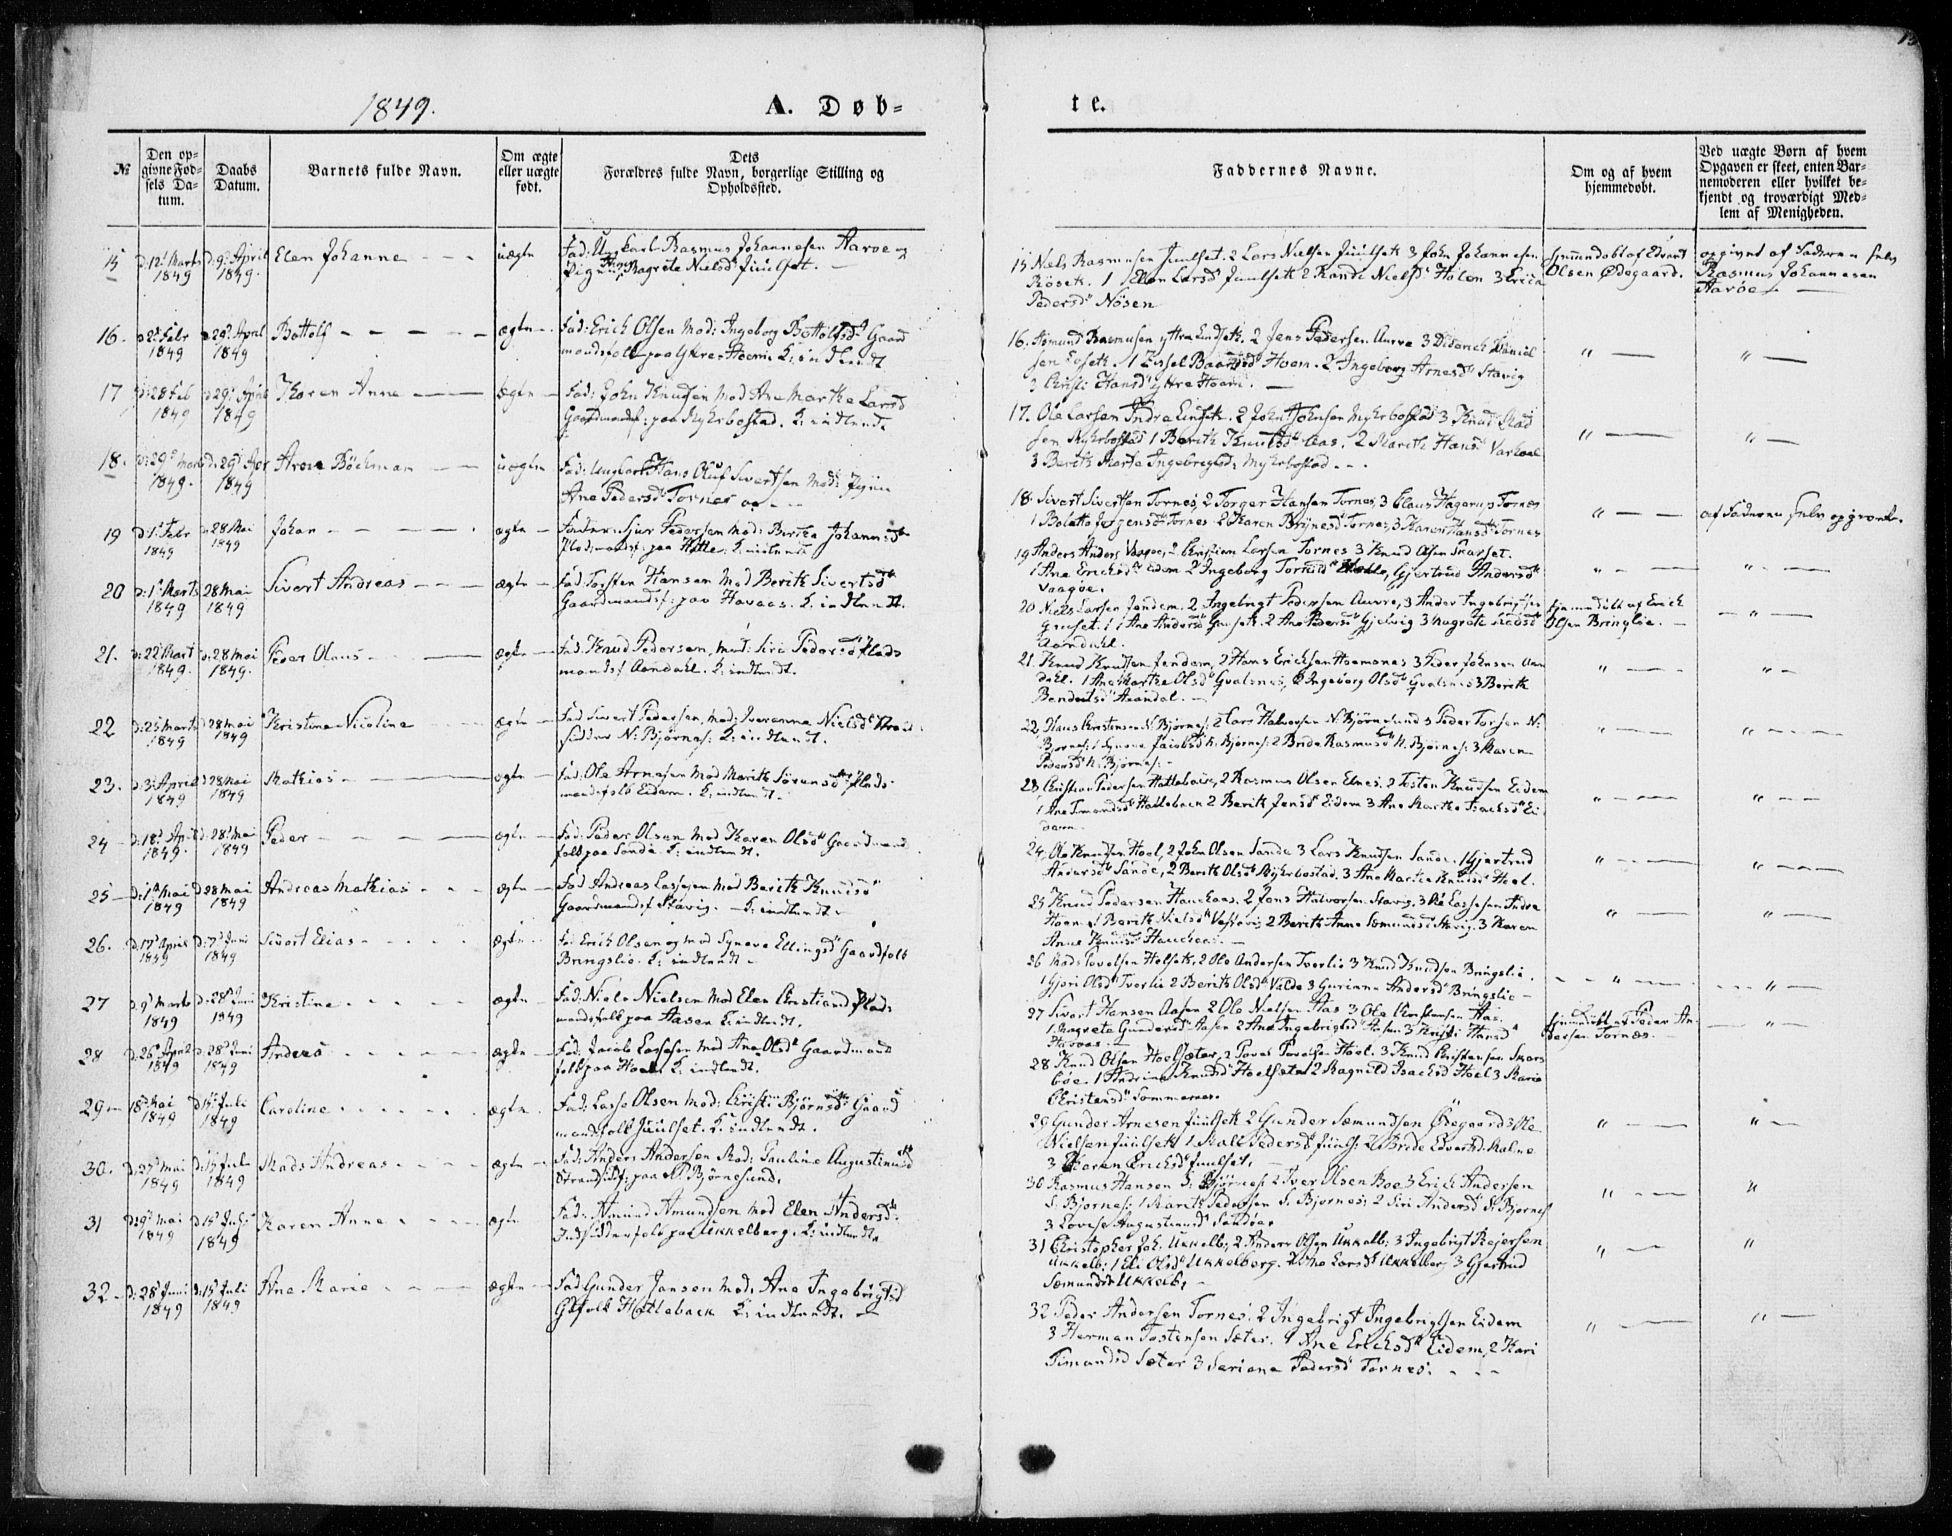 13
1849.
A. Døb=
te.
№
Den op=
givne Fød=
sels Da=
tum.
Daabs
Datum.
Barnets fulde Navn.
Om ægte
eller uægte
født.
Dets
Forældres fulde Navn, borgerlige Stilling og
Opholdssted.
Faddernes Navne.
Om og af hvem
hjemmedøbt.
Ved uægte Børn af hvem
Opgaven er skeet, enten Bar=
nemoderen eller hvilket be=
kjendt og troværdigt Med=
lem af Menigheden.
15 d: 12t Marts d: 9. April Elen Johanne uægte Fad: Ungkarl Rasmus Johannesen Aarøe og
1849 1849. Pig Magrete Nielsd Juulset.
15 Niels Rasmusen Juulset. 2 Lars Nielsen Juulset 3 John Johannesen
Røsek. 1 Ellen Larsd Juulset 2 Randi Nielsd Holen 3 Ericka
Pedersd Nøsen
Hjemmedøbt af Edvard
Olsen Ødegaard.
opgivet af Faderen selv
Rasmus Johannesen
Aarøe
16. d 2 Febr d 29 April Bottolf ægte Fad: Erich Olsen Mod: Ingeborg Bottolfsd Gaard
1849 1849 mandsfolk paa Yttre Hoem K: indledt
16. Asmund Rasmusen yttre Lindset. 2 Jens Pedersen Aurve 3 Diderich Daniel
sen Eoset. 1 Eissel Baardsd Hoem. 2 Ingeborg Arnesd Stavig
3 Christi Hansd yttre Hoem.
17 28 Feb d 29 April Karen Anne Ægte Fad: John Knudsen Mod Ane Marthe Larsd
1849 1849 Gaardmandsf: paa Myhrbostad. K: indledt
17. Ole Larsen Indre Lindset. 2 John Johnsen Myhrbostad 3 Knud Mad
sen Myhrbostad 1 Berith Knudsd Aas. 2 Marith Hansd Varhoel
3 Berith Marta Ingebrigtsd: Myhrbostad
18. 29 Mars d. 29d Apr Arne Böchman uægte Fad: Ungkarl Hans Oluf Sivertsen Mod: Pigen
1849. 1849 Ane Pedersd Tornes
18. Sivert Sivertsen Tornes, 2 Torger Hansen Tornes, 3 Claus Hagerup Tornes
1 Bolette Jørgensd Tornes 2 Karen Brynesd Tornes, 3 Karen Hansd Tornes
af Faderen selv opgivet.
19 d 1t Febr d. 28 Mai Johan ægte Fader: Siur Pedersen Mod: Bertha Johannsd
1849 1849 Pladsmandsf: paa Hatle. K: indledt
19 Anders Anders Vaagøe, 2 Christian Larsen Tornes 3 Knud Olsen Skarset.
1 Ane Ericksd Eidem 2 Ingeborg Tornes Hatle, Gjertrud Andersd
Vaagøe.
20 d: 1t Marts 28 Mai Sivert Andreas ægte Fad Torsten Hansen Mod Berith Sivertsd
1849 1849 Gaardmandsf: paa Havaas. K: indledt.
20 Niels Larsen Jendem. 2 Ingebrigt Pedersen Aurve, 3 Ander Ingebrigtsen
Gauset. 1 Ane Andersd Gauset. 2 Ane Pedersd Gjelvig 3 Magrete Lladsd
Aandahl.
Hjemmedøbt af Erich
Olsen Bringslie.
21. d: 22 Mart d: 28 Mai Peder Olaus ægte Fad: Knud Pedersen, mod: Siri Pedersd Plads
1849. 1849. mandsf Aandahl. K: indledt.
21. Knud Knudsen Jendem, 2 Hans Ericksen Hoemsnes 3 Peder Johnsen Aan
dahl. 1 Ane Marthe Olsd Gvalsnes, 2 Ingeborg Olsd Gvalsnes 3 Berith
Bendentsd Aandal.
22 d: 25 Marts d 28 Mai Kristine Nicoline ægte Fad Sivert Pedersen, mod: Iverenna Nielsd Strand
1849 1849 sidder N: Bjørnes: K: indledt.
22, Hans Christensen N: Bjørnes: 2 Lars Halvorsen N: Bjørnesund 3 Peder Torsen N:
Bjørnes: 1 Synøve Jacobsd N: Bjørnes: 2 Bride Rasmusd N. Bjørnes: 3 Maren
Pedersd N: Bjørnes:
23. d: 3: April d 28 Mai Mathias ægte Fad: Ole Arnesen Mod Marith Sørensd Plads
1849 1849 mandsfolk Eidem. K: indledt.
23 Christian Pedersen Hatleback, 2 Rasmus Olsen Elnes. 2 Tosten Knudsen Eidem
1 Ane Timandsd Hatleback 2 Berith Jensd Eidem 3 Ane Marthe Isacksd Ei
dem
24 d: 18d April d: 28 Mai Peder ægte Fad: Peder Olsen Mod Karen Olsd Gaardmand
1849. 1849 folk paa Sande K: indledt.
24, Ole Knudsen Hoel, 2 John Olsen Sande 3 Lars Knudsen Sande. 1 Gjertrud
Andersd Sande, 2 Berith Olsd Myhrbostad. 3 Ane Marthe Knudsd Hoel.
25 d: 1t Mai d 28 Mai Andreas Mathias ægte Fad Andreas Lassesen Mod Berith Knudsd
1849 1849 Gaardmandsf Stavig. K: indledt
25 Knud Pedersen Hauckaas. 2 Jens Halvorsen Stavig. 3 Ole Lassesen Indre
Hoem 1 Berith Nielsd 2 Berith Anne Semundsd Stavig. 3 Karen
Anne Knudsd Hauckaas.
26. d. 17d April d: 7d Juni Sivert Elias ægte Fa: Erich Olsen og mod Synøve Ellingsd Gaardfolk
1849 1849 Bringslie. K: indledt
26 Mads Tovelsen Helset, 2 Ole Andersen Tverlie 3 Knud Knudsen Bringslie.
1 Gjøri Olsd Tverlie 2 Berith Olsd Vilde 3 Gurianna Andersd Bringslie
27 d. 9d Marts d: 28d Juni Kristine ægte Fad: Niels Nielsen Mod Elen Christiansd Plads
1849 1849 mandsfolk paa Aasen K: indledt.
27 Sivert Hansen Aasen 2 Ole Nielsen Aas 3 Ole Christensen Aas.
1 Magrete Gundersd Aasen 2 Ane Ingebrigtsd Aasen 3 Kristi Hansd
Havaas.
Hjemmedøbt af Peder An
dersen Tornes.
28 d: 26 April d: 28d Juni Anders ægte Fad: Jacob Lassesen Mod Ane Olsd Gaardmand
1849 1849 folk paa Hoem K. indledt.
28 Knud Olsen Hoelsæter, 2 Tovel Tovelsen Hoel. 3 Knud Christensen Skars
bøe. 1 Andrina Knudsd Hoelsæter 2 Ragnild Isacksd Hoel 3 Marie
Christensd Sommernes.
29 18d Mai d 15d Juli Caroline ægte Fad: Lasse Olsen Mod: Christi Bjørnsd Gaard
1849 1849 mandsfolk Juulset. K: indledt.
29 Gunder Arnesen Juulset 2 Gunder Semundsen Ødegaard 3 Ole
Nielsen Juulset 1 Mali Pedersd Juuls: 2 Bride Edvardsd. Malme
3 Maren Ericksd Juulset.
30. d: 27 Mai d. 15 Juli Mads Andreas ægte Fad: Anders Andersen Mod: Pauline Augustinusd
1849 1849 Strandsidf: paa S Bjørnesund.
30 Rasmus Hansen S: Bjørnes: 2 Iver Olsen Boe 3 Erich Andersen
S: Bjørnes: 1 Marith Pedersen S. Bjørnes; 2 Siri Andersd S: Bjørnes
3 Lovise Augustinusd Sandøe
31 d: 9d Mai d 15d Juli Karen Anne ægte Fad: Amund Amundsen Mod Elen Andersd:
1849 1849 Indsidderfolk paa Ukkelberg. K: indledt
31 Christopher Joh: Ukkelb: 2 Anders Olsen Ukkelb: 3 Ingebrigt Rejersen
Ukkelb: 1 Eli Olsd Ukkelberg. 2 Ane Larsd Ukkelber, 3 Gjertrud
Semundsd Ukkelb.
32 d: 28d Juni d: 15d Juli Ane Marie ægte Fad Gunder Jansen Mod. Ane Ingebrigtsd
1849 1849 Gdfolk Hatleback K: indledt.
32 Peder Andersen Tornes. 2 Ingebrigt Ingebrigtsen Eidem
3 Herman Tostensen Sæter. 1 Ane Ericksd Eidem, 2 Kari
Timandsd Sæter 3 Seriane Pedersd Tornes.